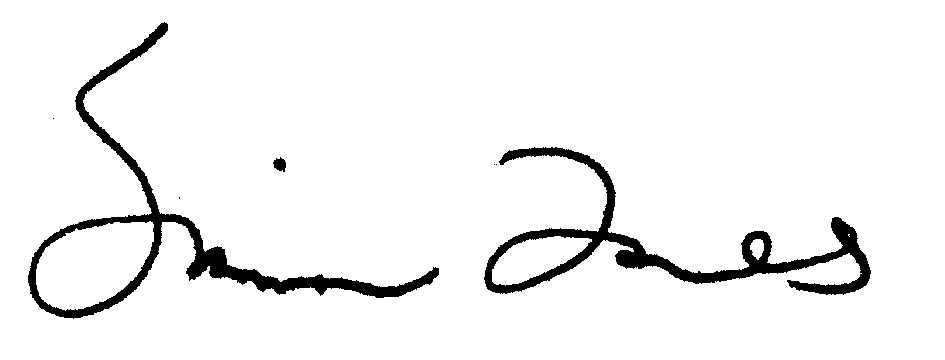 Simon Jones